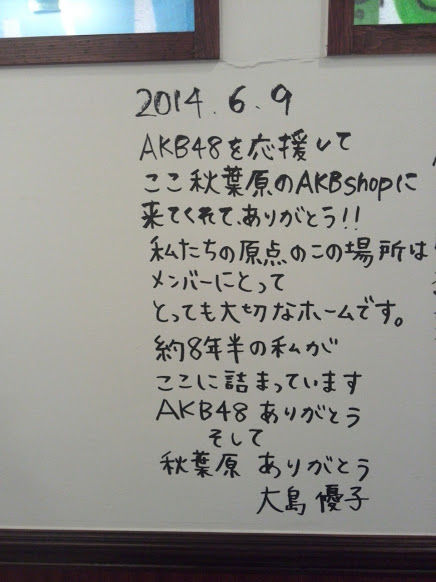 2014.6.9
AKB48を応援して
ここ秋葉原のAKBshopに
来てくれて、ありがとう!!
私たちの原点のこの場所は
メンバーにとって
とっても大切なホームです。
約8年半の私が
ここに詰まっています
AKB48 ありがとう
そして
秋葉原 ありがとう
大島優子